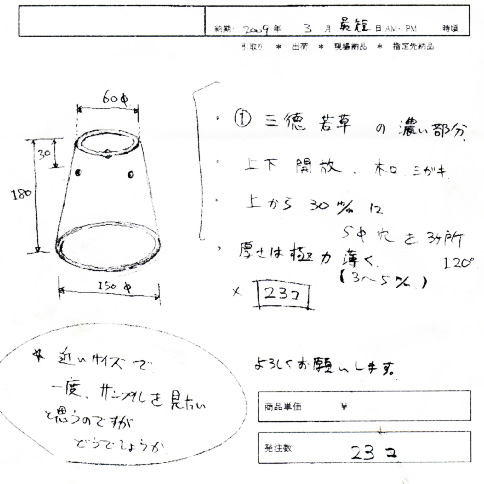 納期: 2009年 3月 最短 日 AM・PM 時頃
引取り * 出荷 * 現場納品 * 指定先納品
60φ
30
180
150φ
・① 三徳若草 の 濃い部分.
・上下 開放、木口 ミガキ.
・上から 30 m/m に
5φ 穴 を 3ヶ所
120°
・厚さは極力 薄く.
(3〜5 m/m)
× 23コ
* 近いサイズで
一度、サンプルを見たい
と思うのですが
どうでしょうか
よろしくお願いします。
商品単価 ¥
発注数 23コ